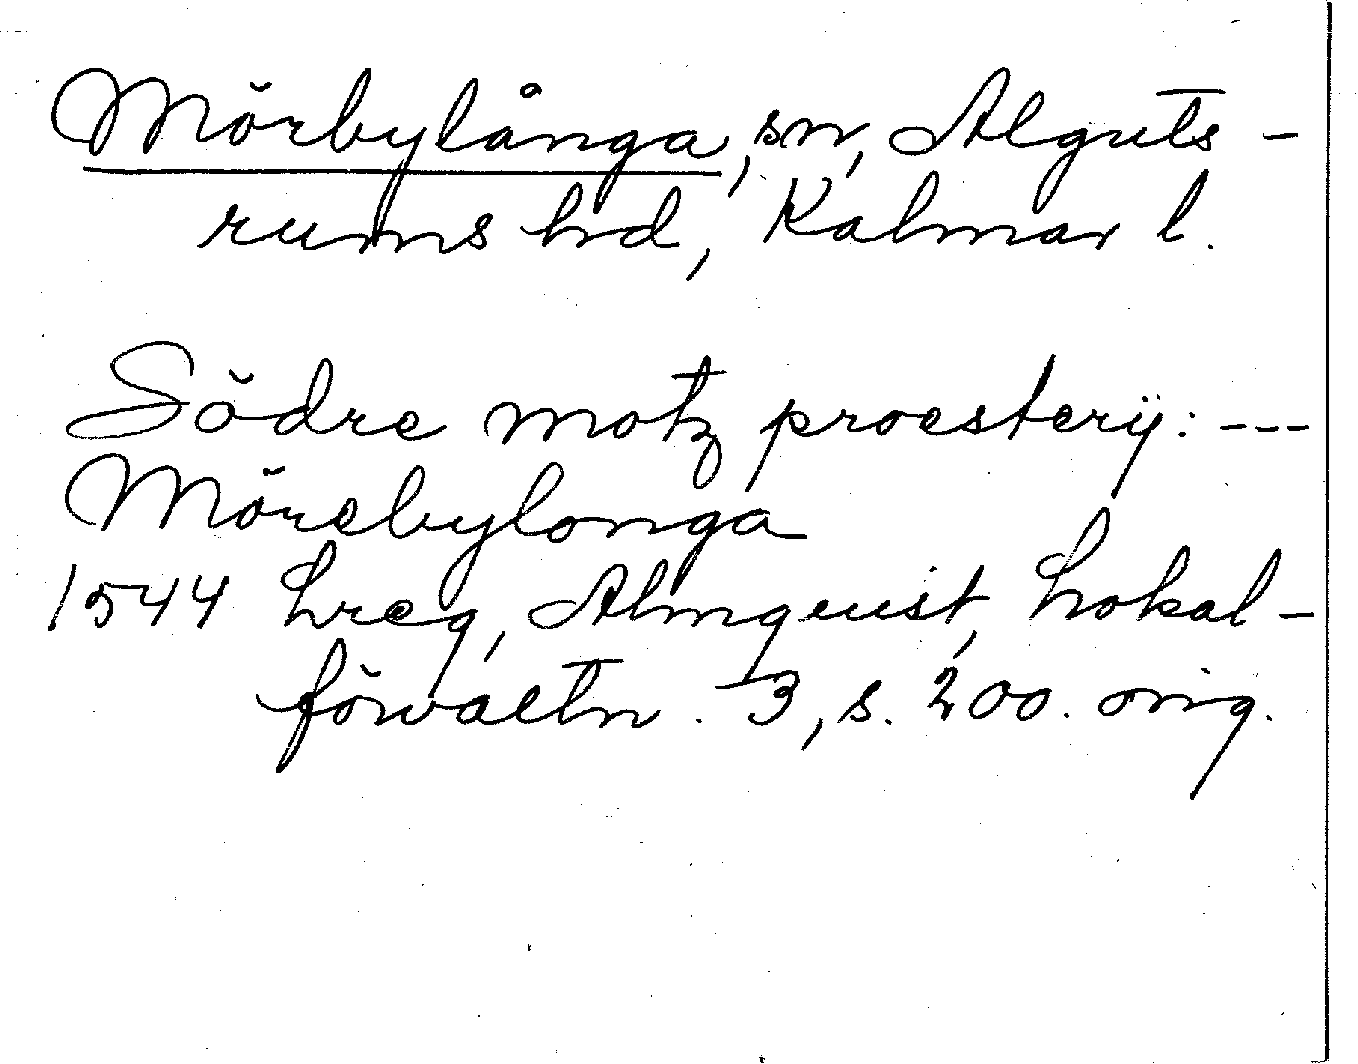 Mörbylånga, sn, Alguts-
rums hd, Kalmar l.
Södre motz proesterij: ---
Mörebylonga
1544 Lreg, Almquist, Lokal-
förvaltn. 3, s. 200. orig.